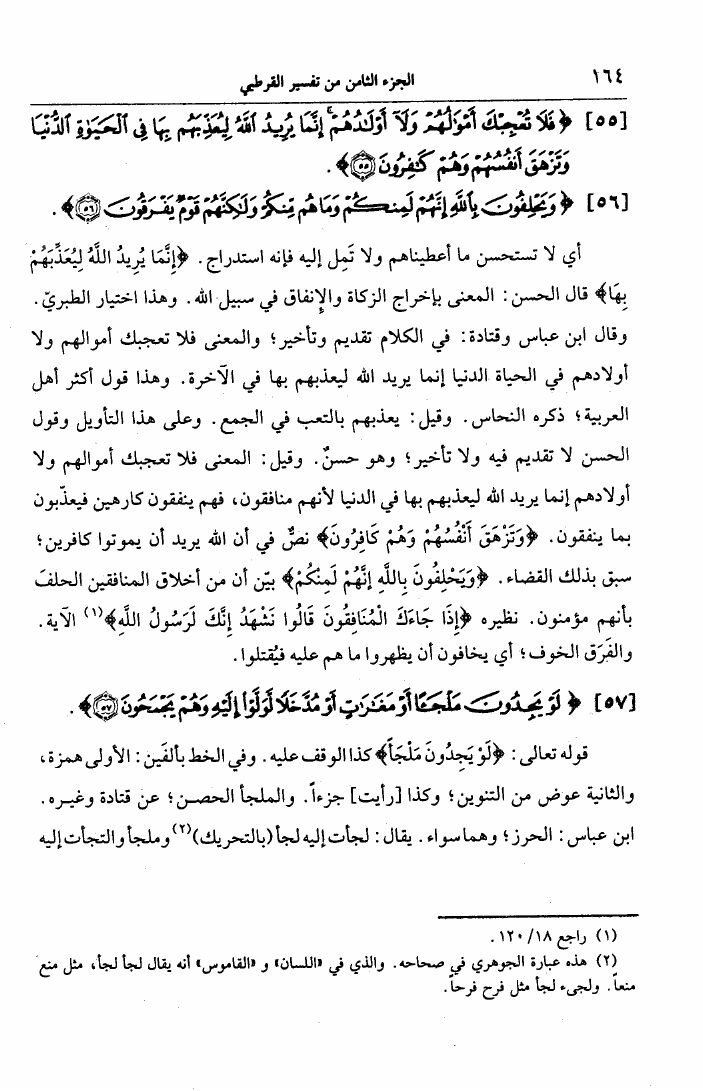 ١٦٤
الجزء الثامن من تفسير القرطبي
[٥٥] ﴿ فَلَا تُعْجِبْكَ أَمْوَٰلُهُمْ وَلَآ أَوْلَـٰدُهُمْ ۚ إِنَّمَا يُرِيدُ ٱللَّهُ لِيُعَذِّبَهُم بِهَا فِى ٱلْحَيَوٰةِ ٱلدُّنْيَا
وَتَزْهَقَ أَنفُسُهُمْ وَهُمْ كَـٰفِرُونَ ۝٥٥ ﴾ .
[٥٦] ﴿ وَيَحْلِفُونَ بِٱللَّهِ إِنَّهُمْ لَمِنكُمْ وَمَا هُم مِّنكُمْ وَلَـٰكِنَّهُمْ قَوْمٌ يَفْرَقُونَ ۝٥٦ ﴾ .
أي لا تستحسن ما أعطيناهم ولا تَمِل إليه فإنه استدراج. ﴿إِنَّمَا يُرِيدُ اللَّهُ لِيُعَذِّبَهُمْ
بِهَا﴾ قال الحسن: المعنى بإخراج الزكاة والإنفاق في سبيل الله. وهذا اختيار الطبريّ.
وقال ابن عباس وقتادة: في الكلام تقديم وتأخير؛ والمعنى فلا تعجبك أموالهم ولا
أولادهم في الحياة الدنيا إنما يريد الله ليعذبهم بها في الآخرة. وهذا قول أكثر أهل
العربية؛ ذكره النحاس. وقيل: يعذبهم بالتعب في الجمع. وعلى هذا التأويل وقول
الحسن لا تقديم فيه ولا تأخير؛ وهو حسنٌ. وقيل: المعنى فلا تعجبك أموالهم ولا
أولادهم إنما يريد الله ليعذبهم بها في الدنيا لأنهم منافقون، فهم ينفقون كارهين فيعذّبون
بما ينفقون. ﴿وَتَزْهَقَ أَنْفُسُهُمْ وَهُمْ كَافِرُونَ﴾ نصٌّ في أن الله يريد أن يموتوا كافرين؛
سبق بذلك القضاء. ﴿وَيَحْلِفُونَ بِاللَّهِ إِنَّهُمْ لَمِنْكُمْ﴾ بيّن أن من أخلاق المنافقين الحلفَ
بأنهم مؤمنون. نظيره ﴿إِذَا جَاءَكَ الْمُنَافِقُونَ قَالُوا نَشْهَدُ إِنَّكَ لَرَسُولُ اللَّهِ﴾(١) الآية.
والفَرَق الخوف؛ أي يخافون أن يظهروا ما هم عليه فيُقتلوا.
[٥٧] ﴿ لَوْ يَجِدُونَ مَلْجَـًٔا أَوْ مَغَـٰرَٰتٍ أَوْ مُدَّخَلًا لَّوَلَّوْا۟ إِلَيْهِ وَهُمْ يَجْمَحُونَ ۝٥٧ ﴾ .
قوله تعالى: ﴿لَوْ يَجِدُونَ مَلْجَأً﴾ كذا الوقف عليه. وفي الخط بألفَين: الأولى همزة،
والثانية عوض من التنوين؛ وكذا [رأيت] جزءاً. والملجأ الحصن؛ عن قتادة وغيره.
ابن عباس: الحرز؛ وهما سواء. يقال: لجأت إليه لجأ (بالتحريك)(٢) وملجأ والتجأت إليه
(١) راجع ١٨/ ١٢٠.
(٢) هذه عبارة الجوهري في صحاحه. والذي في «اللسان» و «القاموس» أنه يقال لجأ لجأ، مثل منع
منعاً. ولجىء لجأ مثل فرح فرحاً.